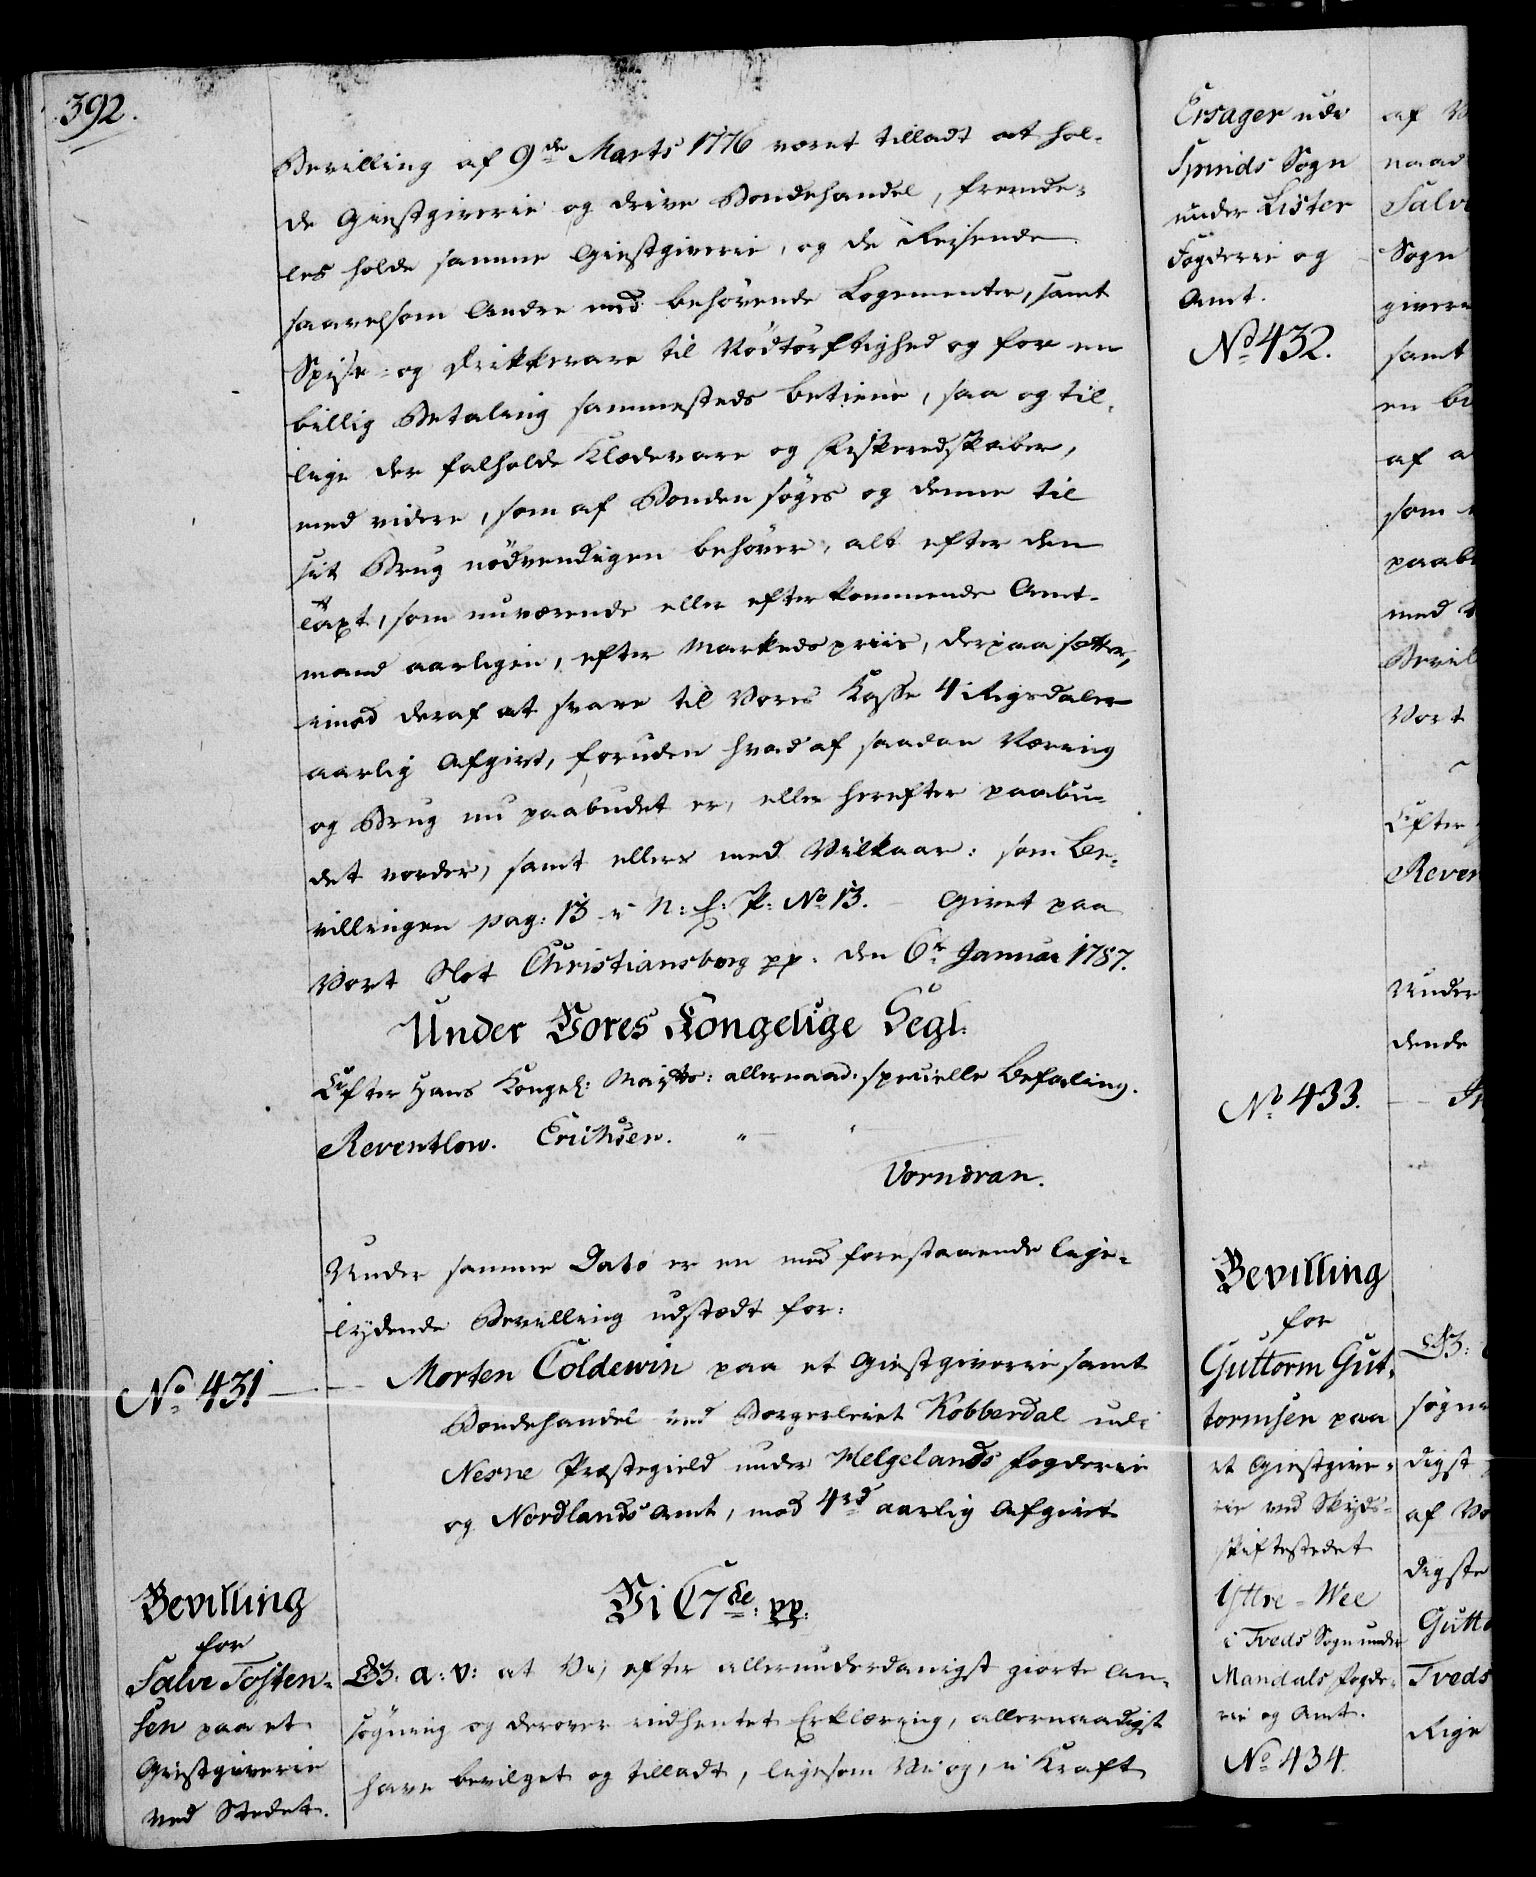 392.
Bevilling af 9de Marts 1776 været tilladt at hol-
de Giestgiverie og drive Bondehandel, fremde-
les holde samme Giestgiverie, og de Reisende
saavelsom Andre med behövende Logementer, samt
Spise- og Drikkevare til Nödtörftighed og for en
billig Betaling sammesteds betiene, saa og til-
lige der falholde Klædevare og Fiskeredskaber,
med videre, som af Bonden söges og denne til
sit Brug nödvendigen behöver, alt efter den
Taxt, som nuværende eller efterkommende Amt-
mand aarligen, efter Markedspriis, derpaa sætter,
imod deraf at svare til Vores Kasse 4 Rigsdaler
aarlig Afgivt, foruden hvad af saadan Næring
og Brug nu paabudet er, eller herefter paabu-
det vorder, samt ellers med Vilkaar: som Be-
villingen pag: 13 i N: E: P: No 13. - Givet paa
Vort Slot Christiansborg pp. den 6te Januar 1787.
Under Vores Kongelige Segl.
Efter Hans Kongel: Maj:ts: allernaad. specielle Befaling.
Reventlow. Erichsen. " "
Vorndran.
Under samme Dato er en med forestaaende lige-
lydende Bevilling udstædt for:
No 431 — Morten Coldewin paa et Giestgiverie samt
Bondehandel ved Borgerleiet Kobberdal udi
Nesne Præstegield under Helgelands Fogderie
og Nordlands Amt, mod 4rd aarlig Afgivt
Bevilling
for
Salve Tosten-
sen paa et
Giestgiverie
ved Stedet.
Vi C7de: pp.
G: a: v: at Vi, efter allerunderdanigst giorte An-
sögning og derover indhentet Erklæring, allernaadigst
have bevilget og tilladt, ligesom Vi og, i Kraft
Ersager udi
Spinds Sogn
under Lister
Fogderie og
Amt.
No 432.
No 433.
Bevilling
for
Guttorm Gut-
tormsen paa
et Giestgive-
rie ved Skyds-
skiftestedet
Yttre-Wee
i Tveds Sogn under
Mandals Fogde-
rie og Amt.
No 434.
af
naad
Salv
Sogn
givere
samt
en
af
som
paab
med
Bevil
Vort
Efter
Reven
Under
dende
sögn
digst
af
digste
Gutt
Tveds
Rige